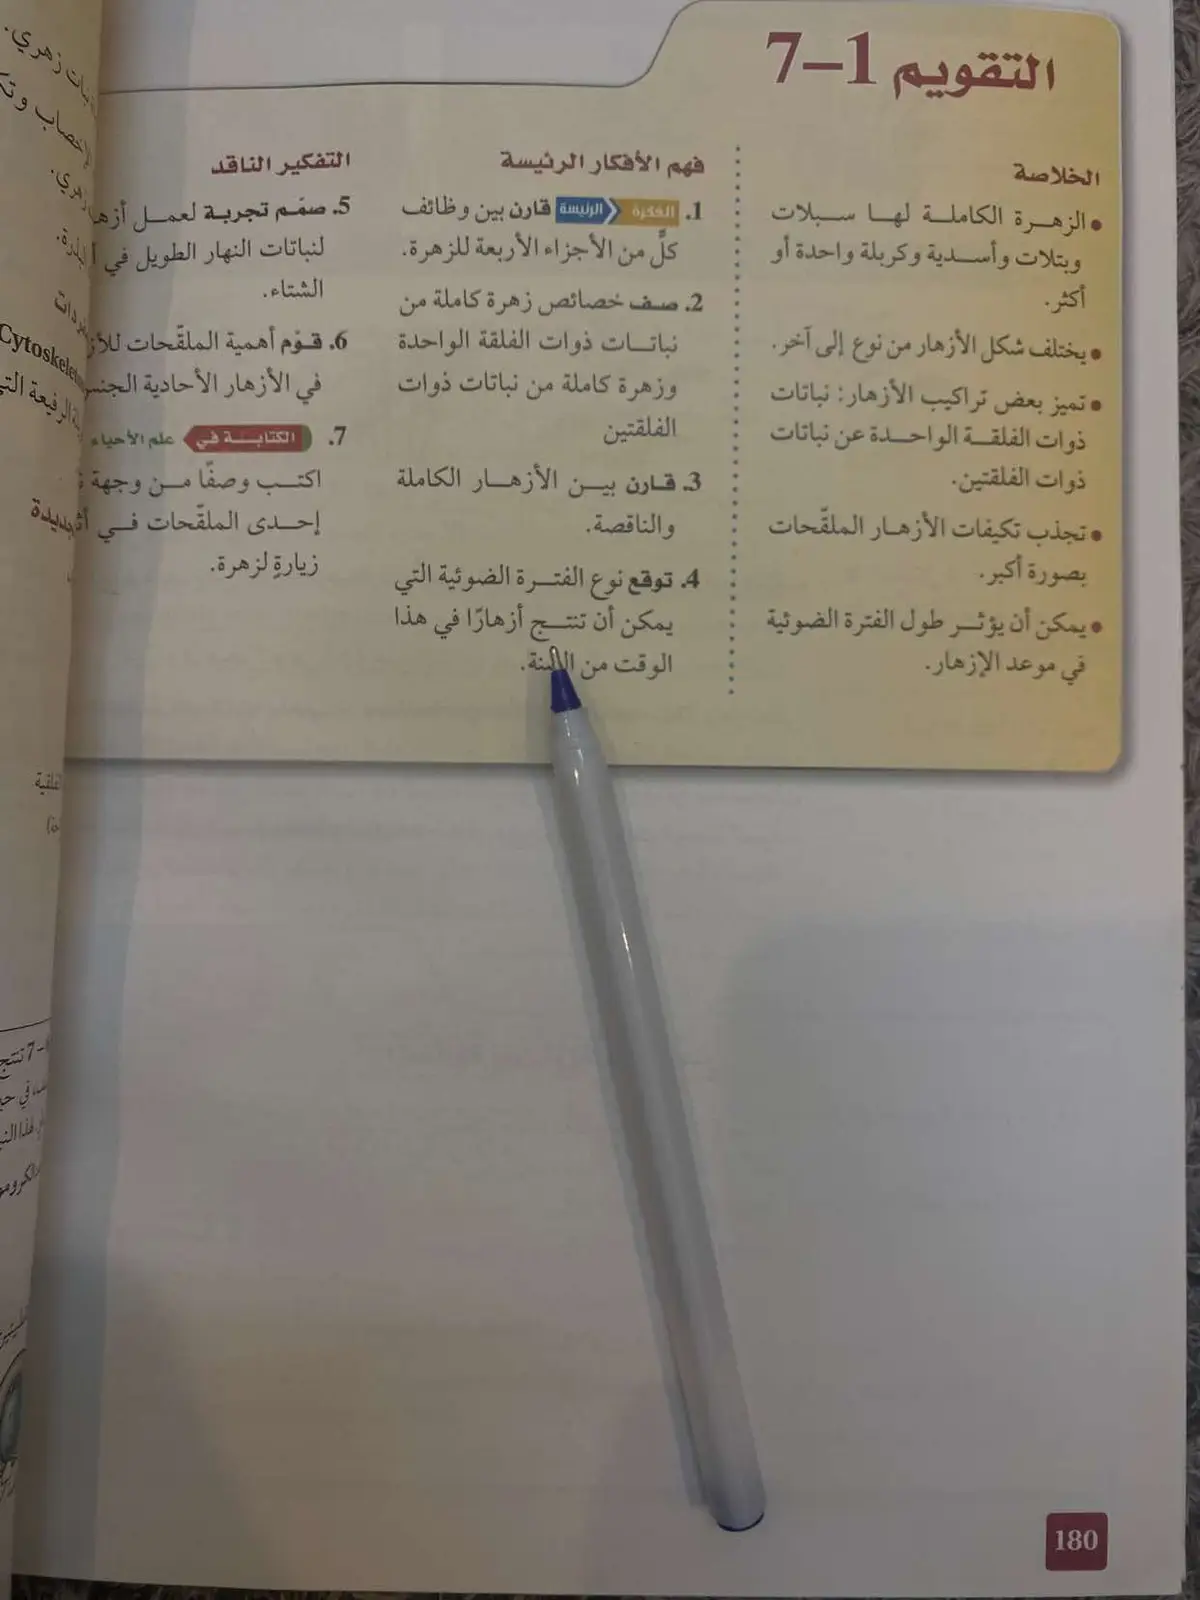 التقويم 1–7
الخلاصة
• الزهرة الكاملة لها سبلات
وبتلات وأسدية وكربلة واحدة أو
أكثر.
• يختلف شكل الأزهار من نوع إلى آخر.
• تميز بعض تراكيب الأزهار: نباتات
ذوات الفلقة الواحدة عن نباتات
ذوات الفلقتين.
• تجذب تكيفات الأزهار الملقّحات
بصورة أكبر.
• يمكن أن يؤثر طول الفترة الضوئية
في موعد الإزهار.
فهم الأفكار الرئيسة
1. الفكرة الرئيسة قارن بين وظائف
كلٍّ من الأجزاء الأربعة للزهرة.
2. صف خصائص زهرة كاملة من
نباتات ذوات الفلقة الواحدة
وزهرة كاملة من نباتات ذوات
الفلقتين
3. قارن بين الأزهار الكاملة
والناقصة.
4. توقع نوع الفترة الضوئية التي
يمكن أن تنتج أزهارًا في هذا
الوقت من السنة.
التفكير الناقد
5. صمّم تجربة لعمل
لنباتات النهار الطويل في
الشتاء.
6. قوّم أهمية الملقّحات
في الأزهار الأحادية
7. الكتابة في علم الأحياء
اكتب وصفًا من وجهة
إحدى الملقّحات في
زيارةٍ لزهرة.
زهري.
180